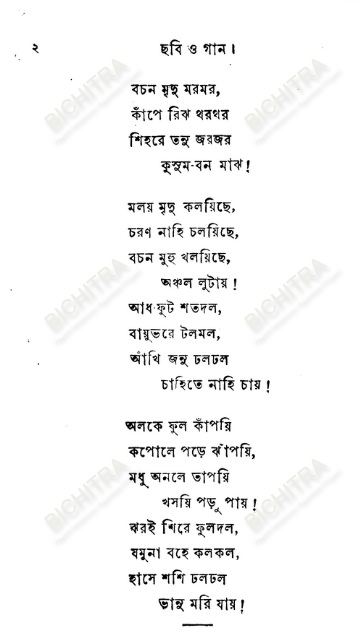 ২ ছবি ও গান।
বচন মৃদু মরমর,
কাঁপে রিঝ থরথর
শিহরে তনু জরজর
কুসুম-বন মাঝ!
মলয় মৃদু কলয়িছে,
চরণ নাহি চলয়িছে,
বচন মুহু খলয়িছে,
অঞ্চল লুটায়!
আধ-ফুট শতদল,
বায়ুভরে টলমল,
আঁখি জনু ঢলঢল
চাহিতে নাহি চায়!
অলকে ফুল কাঁপয়ি
কপোলে পড়ে ঝাঁপয়ি,
মধু অনলে তাপয়ি
খসয়ি পড়ু পায়!
ঝরই শিরে ফুলদল,
যমুনা বহে কলকল,
হাসে শশি ঢলঢল
ভানু মরি যায়!
BICHITRA
BICHITRA
BICHITRA
BICHITRA
BICHITRA
BICHITRA